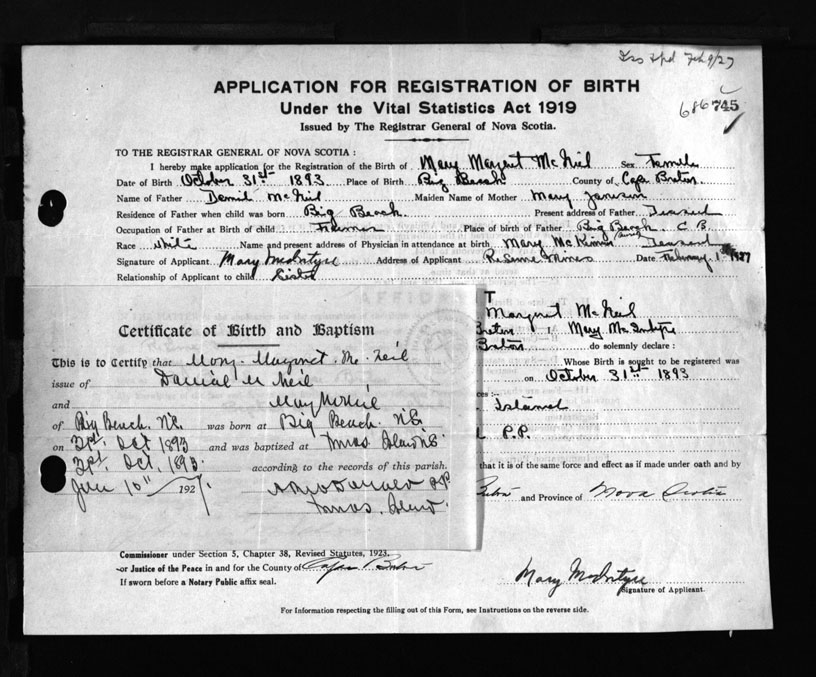 Feb 9/27
APPLICATION FOR REGISTRATION OF BIRTH
Under the Vital Statistics Act 1919
686745
Issued by The Registrar General of Nova Scotia.
TO THE REGISTRAR GENERAL OF NOVA SCOTIA :
I hereby make application for the Registration of the Birth of Mary Margret McNeil Sex Female
Date of Birth October 31st 1893 Place of Birth Big Beach County of Cape Breton
Name of Father McNeil Maiden Name of Mother Mary
Residence of Father when child was born Big Beach. Present address of Father
Occupation of Father at Birth of child Farmer Place of birth of Father Big Beach C B.
Race White Name and present address of Physician in attendance at birth Mary
Signature of Applicant Mary McIntyre Address of Applicant Reserve Mines Date February 1 1927
Relationship of Applicant to child
Margret McNeil
Certificate of Birth and Baptism
Breton I, Mary McIntyre
Breton do solemnly declare :
This is to Certify that Mary Margret Mc Neil
Whose Birth is sought to be registered was
issue of Mc Neil
on October 31st 1893
and
ces :-
of Big Beach. N.S. was born at Big Beach N.S.
Island
on Oct 1893 and was baptized at Island N.S.
P.P.
Oct, 1893. according to the records of this parish.
that it is of the same force and effect as if made under oath and by
10th 1927. P.P.
Breton and Province of Nova Scotia
Island
Commissioner under Section 5, Chapter 38, Revised Statutes, 1923.
or Justice of the Peace in and for the County of Cape Breton
If sworn before a Notary Public affix seal.
Mary McIntyre
Signature of Applicant.
For Information respecting the filling out of this Form, see Instructions on the reverse side.